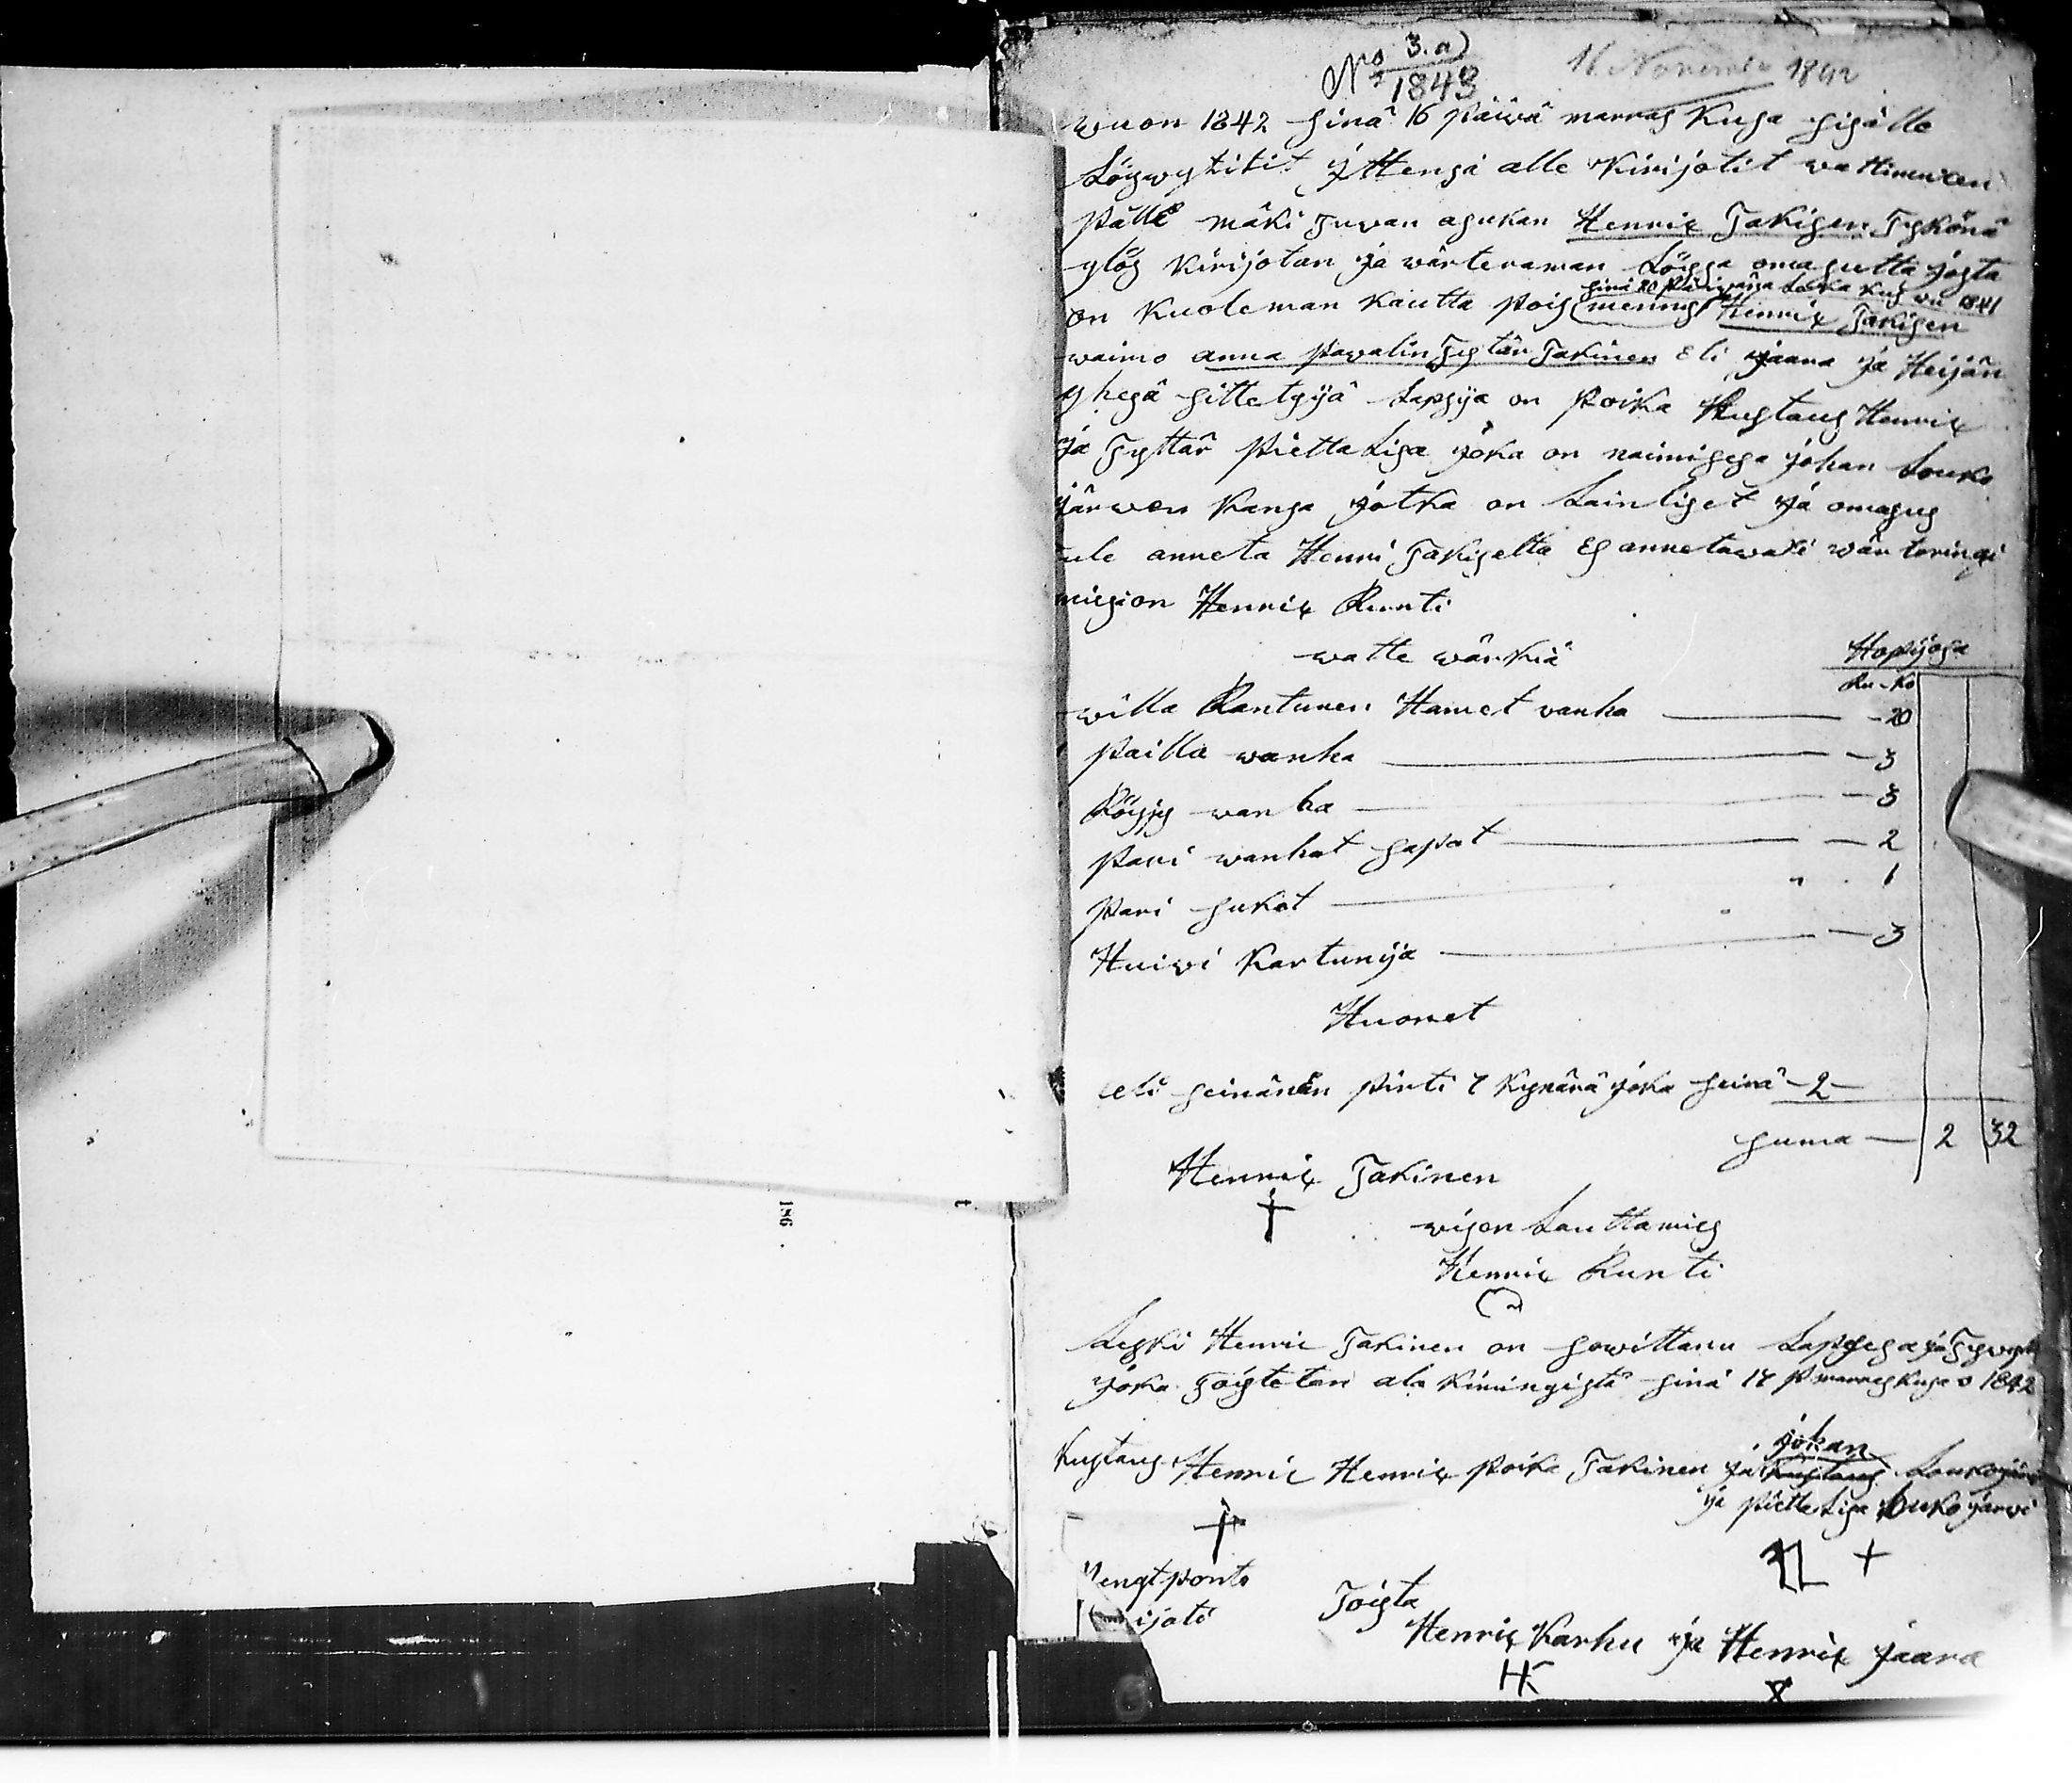 No 3.a)
1843
16 Novembr 1842
wuon 1842 sinä 16 päiwä marras kusa sisälle
Löyswytitit ÿttensä alle kirijotit wattimuxen
pälle mäki Tuwan asukan Henrix Takisen Tykönä
ylös kirijotan ja wärteraman Löysä omasutta josta
on kuoleman kautta pois mennys Henrix Takisen
sinä 20 päiwänä Loka kus wu 1841
waimo anna pawalin Tytär Takinen Eli jaana ja Heijän
yhesä sittetyjä Lapsija on poika Kustaus Henrix
ja Tyttär pietta Lisa joka on naimisesa johan Louko
järwen kansa jotka on Lainliset ja omasus
tule anneta Henri Takiselta Es annetawaxi wärteringi
miesion Henrix Runti
watte wärkiä
Hopijosa
Ru - Ko
willa Rantunen Hamet vanha - 20
pailla wanha - 3
Röyjy wanha - 3
pari wanhat sapat - 2
pari sukat " 1
Huiwi kartunija - 3
Huonet
xeli seinänän pirti 7 kynärä joka seinä - 2 -
suma - 2 32
Henrix Takinen
wisen Lauttamies
Henrix Runti
Leski Henric Takinen on sowittanu Lapsesa ja
joka Toistetan ala kimingistä sinä 17 p marras kusa 1842
Kustaus Henric Henrix poika Takinen ja Kustaus Loukojärwi
johan
ja pietta Lisa Loukojärwi
Bengt ponto
kirijoti
Toista
Henrix Karhu ja Henrix jaara
HK